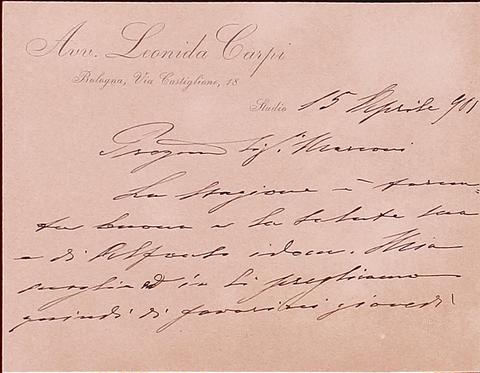 Avv. Leonida Carpi
Bologna, Via Castiglione, 18
Studio 15 Aprile 901
Pregm Sigr Marconi
La stagione è torna-
ta buona e la salute sua
e di Alfonso idem. Mia
moglie ed io La preghiamo
quindi di favorirci giovedì